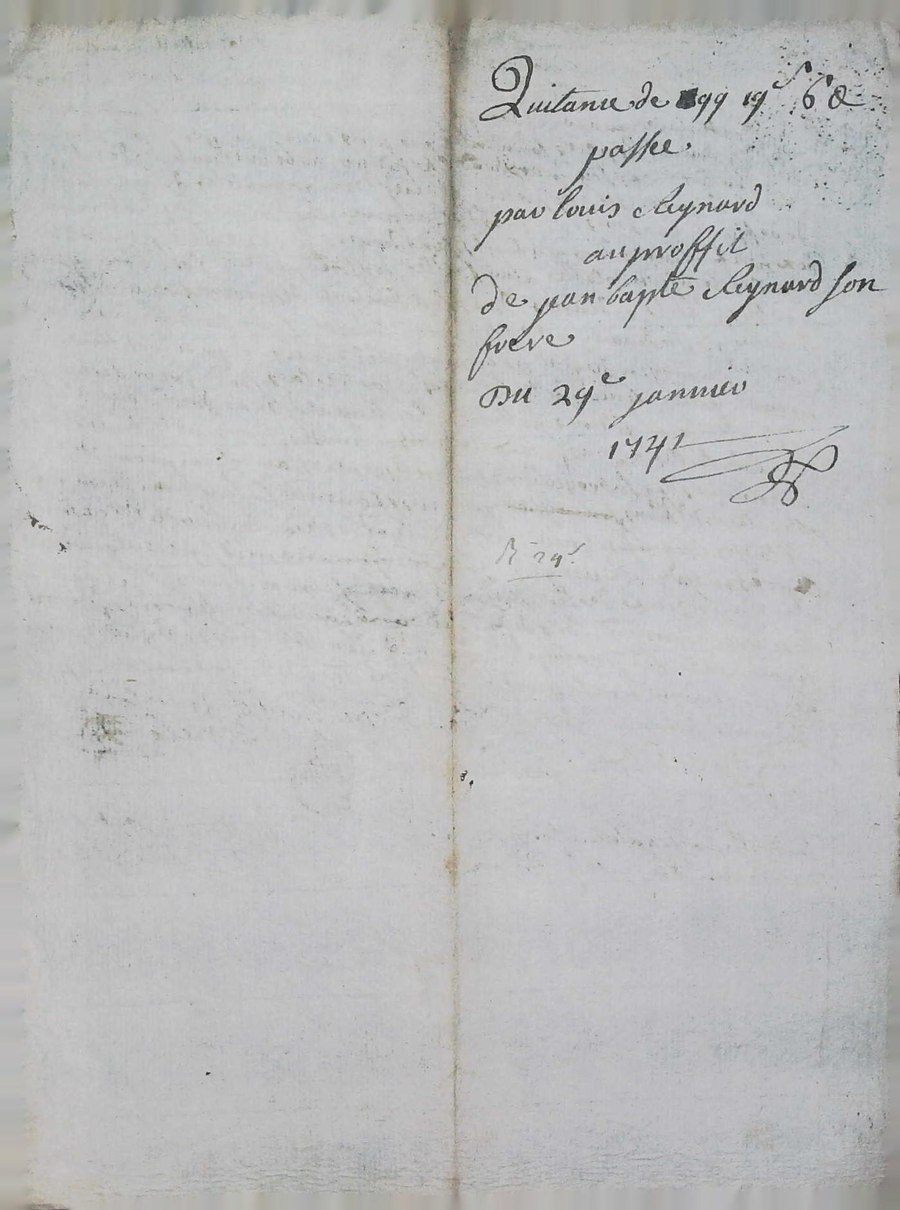 Quitance de 99 19ˢ 6ᵈ
passée
par Louis Reynard
au proffit
de jean bapte Reynard son
frere
Du 29e janvier
1741